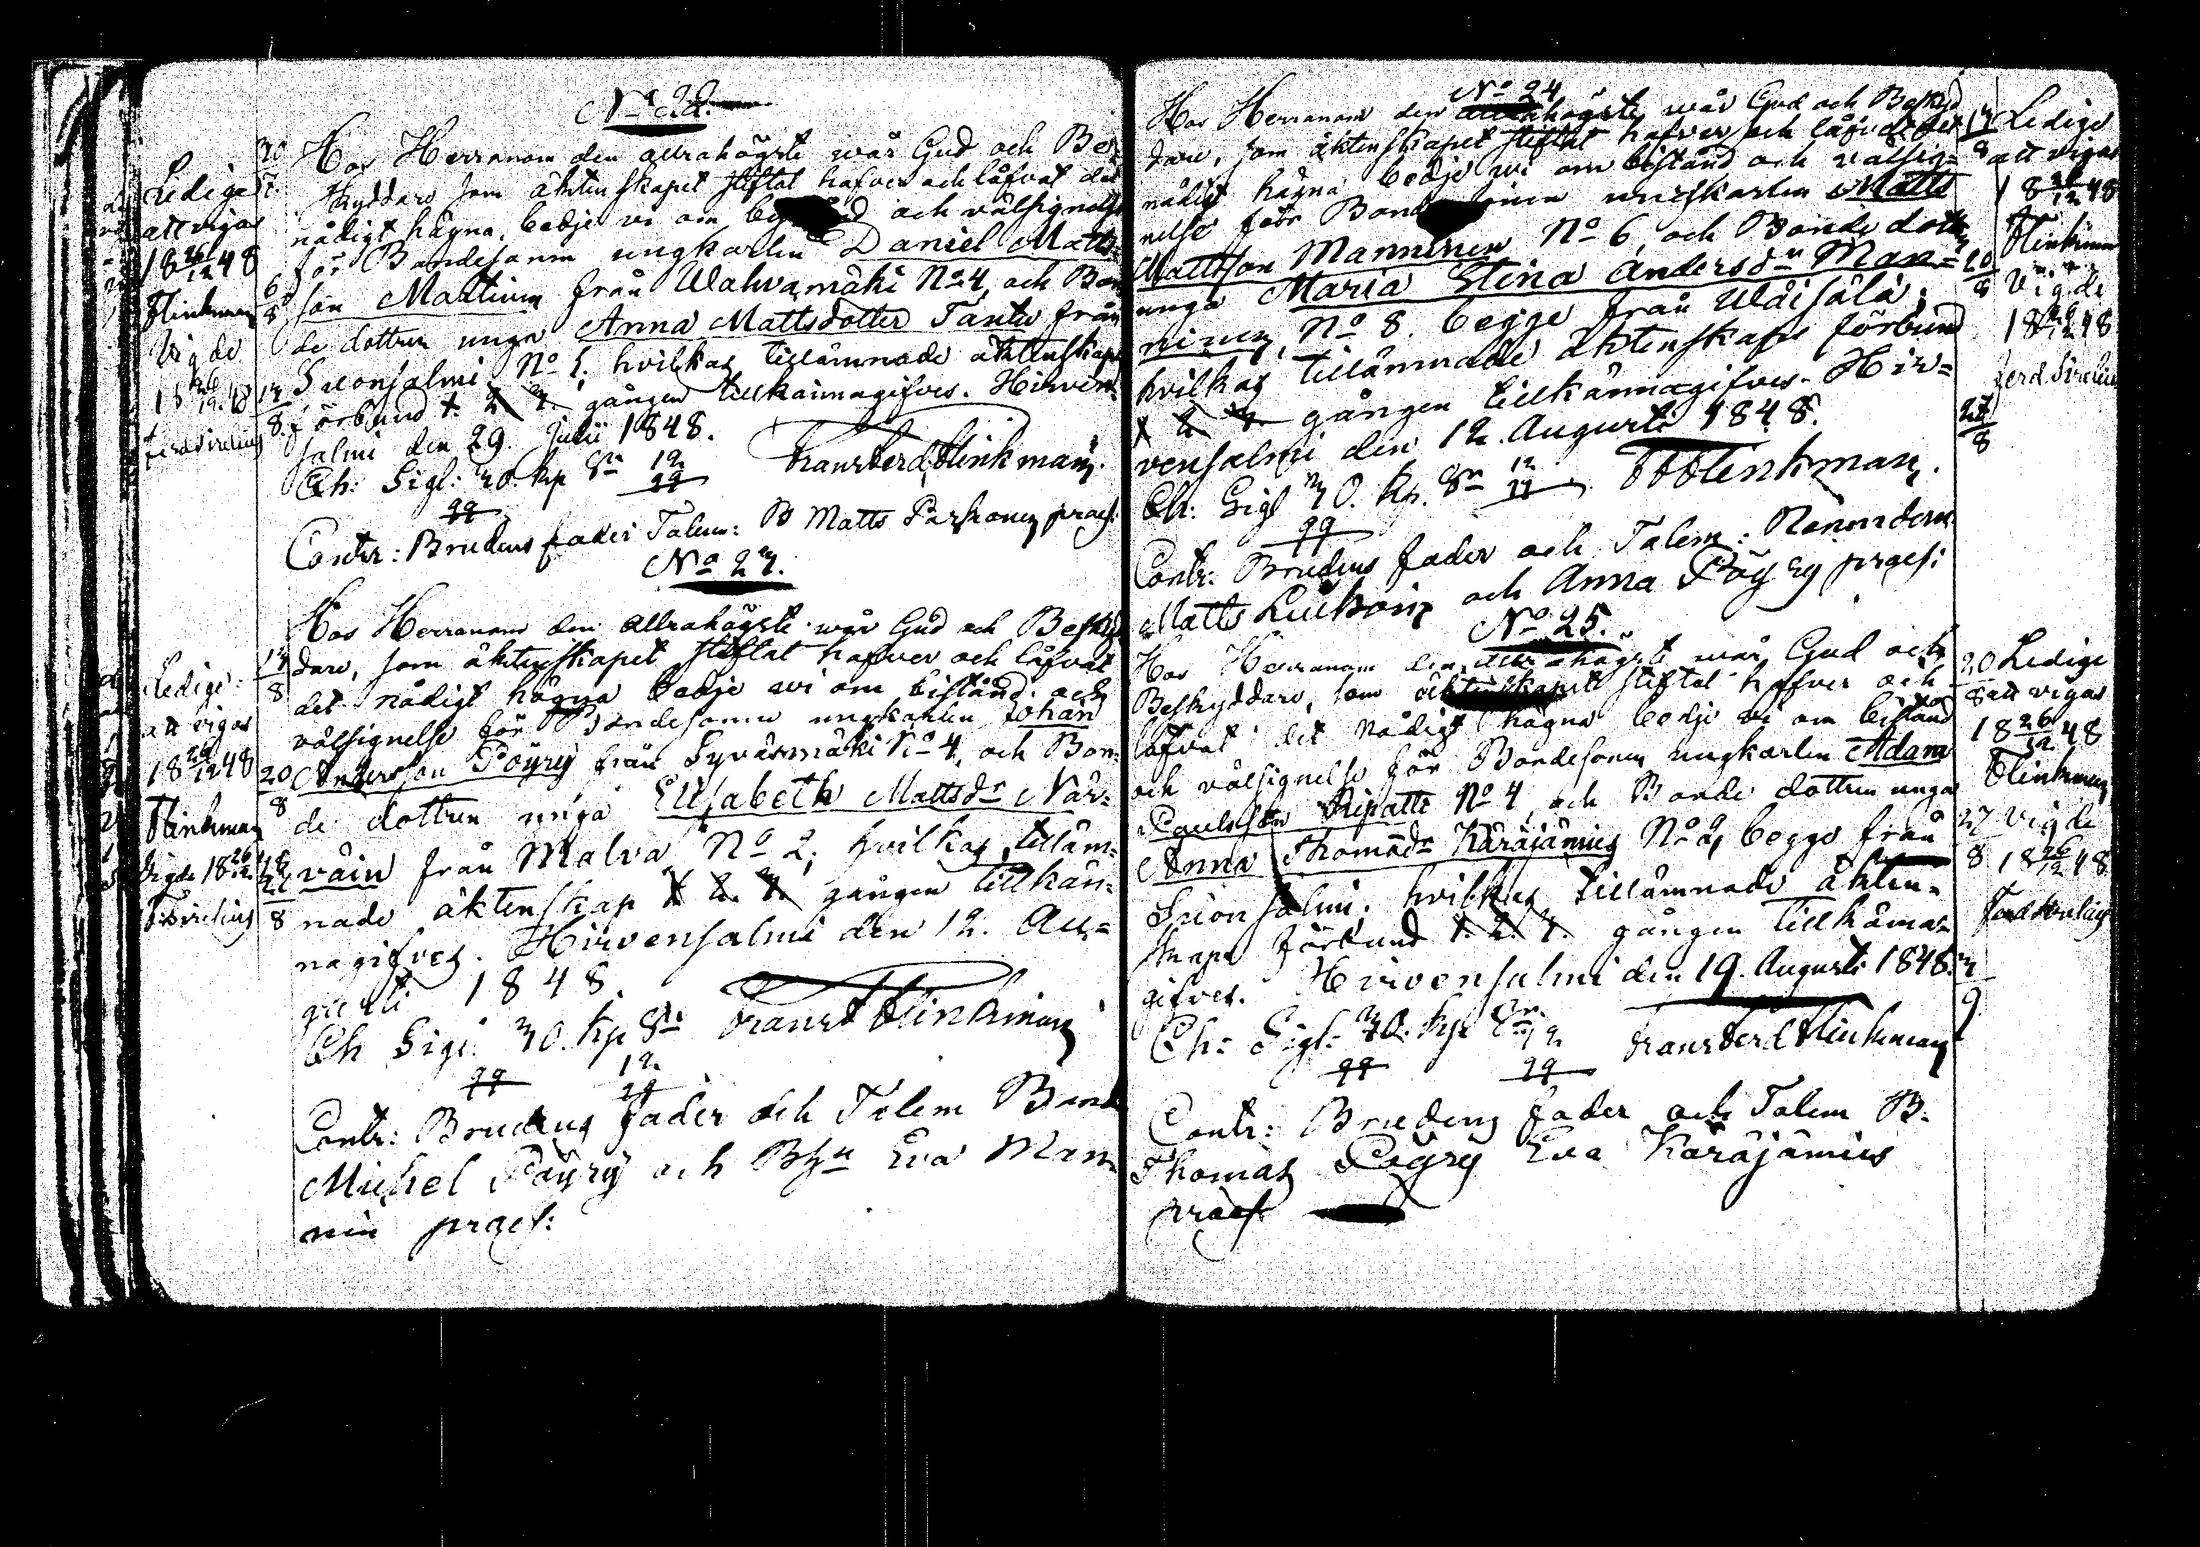 No 22.
Hos Herranom den allrahögste wår Gud och Be-
skyddare som äktenskapet stiftat hafver och låfvat det
nådigt hägna, bedje vi om och välsignelse
för Bondesonen ungkarlen Daniel Matts-
son Marttinen från Wahvamäki No 4, och Bon
de dottren unga Anna Mattsdotter Tanttu från
Suonsalmi No 1, hvilkas tillämnade äktenskaps
förbund 1. 2. 3. gången tillkännagifves. Hirven-
salmi den 29. Julii 1848.
Ch: Sigl: 30. kp Sr 12 Franz Ferd Flinkman.
99
Contr: Brudens fader Talem: B Matts Parkonen praes:
30
7
6
8
13
8
Ledige
att vigas
18 26/12 48
Flinkman
Vigde
18 26/12 48
Ferd Sirelius
No 23.
Hos Herranom den allrahögste wår Gud och Besky
dare, som äktenskapet stiftat hafver och låfvat
det nådigt hägna bedje wi om bistånd och
välsignelse för Bondesonen ungkarlen Johan
Andersson Pöyry från Syväsmäki No 4, och Bon-
de dottren unga Elisabeth Mattsdr När-
väin från Malva No 2, hvilkas tilläm-
nade äktenskap 1. 2. 3. gången tillkän-
nagifves. Hirvensalmi den 12. Au-
gusti 1848.
Ch Sigl. 30. kp Sr Franz F Flinkman
99 12
Contr: Brudens fader och Talem Bond
Michel Pöyry och Bhu Eva Man
nin praes:
13
8
20
8
27
8
Ledige
att vigas
18 26/12 48
Flinkman
Vigde 18 26/12
F Sirelius
No 24
Hos Herranom den allrahögste wår Gud och Besky
dare, som äktenskapet stiftat hafver och låfvat det
nådigt hägna bedje wi om bistånd och välsig-
nelse för ungkarlen Matts
Mattsson Manninen No 6, och Bonde dottr
unga Maria Stina Andersdr Man-
ninen, No 8. begge från Wäisälä,
hvilkas tillämnade äktenskaps förbund
1 2 3 gången tillkännagifves. Hir-
vensalmi den 12. Augusti 1848.
Ch: Sigl 30. kp. Sr 12 FFFlinkman.
99
Contr: Brudens fader och Talem:
Matts och Anna Pöyry praes:
13
8
20
8
27
8
Ledige
att vigas
18 26/12 48
Flinkman
Vigde
18 26/12 48
Ferd. Sirelius
No 25.
Hos Herranom den allrahögste wår Gud och
Beskyddare, som äktenskapet stiftat hafver och
låfvat det nådigt hägna bedje vi om bistånd
och välsignelse för Bondesonen ungkarlen Adam
Paulsson Ripatti No 4 och Bonde dottren unga
Anna Thomasdr Käräjämies No 9, begge från
Suonsalmi, hvilkas tillämnade äkten-
skaps förbund 1. 2. 3. gången tillkänna-
gifves. Hirvensalmi den 19. Augusti 1848.
Ch: Sigl: 30. kp Sr 12 Franz Ferd Flinkman
99 99
Contr: Brudens fader och Talem B.
Thomas Pöyry Eva Käräjämies
praes
20
8
27
8
3
9
Ledige
att vigas
18 26/12 48
Flinkman
Vigde
18 26/12 48
Ferd Sirelius